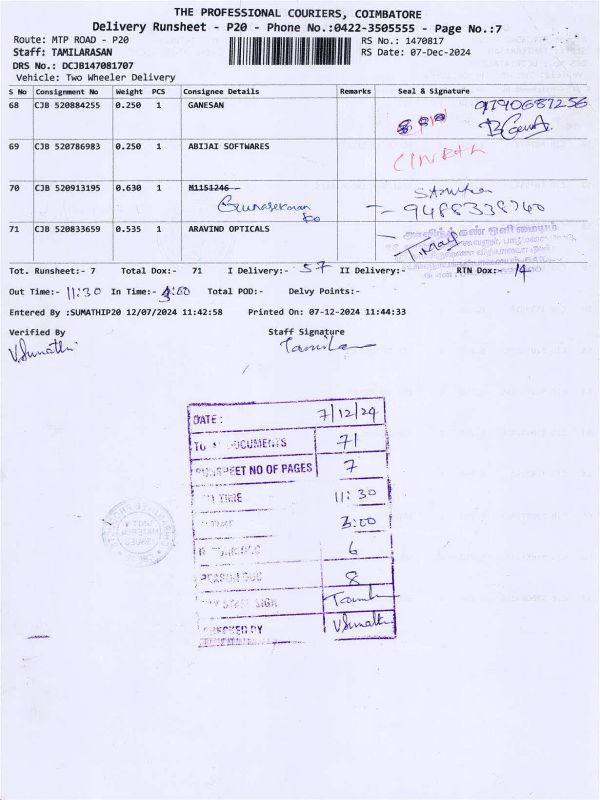 THE PROFESSIONAL COURIERS, COIMBATORE
Delivery Runsheet - P20 - Phone No.:0422-3505555 - Page No.:7
Route: MTP ROAD - P20
RS No.: 1470817
Staff: TAMILARASAN
RS Date: 07-Dec-2024
DRS No.: DCJB147081707
Vehicle: Two Wheeler Delivery
S No Consignment No Weight PCS Consignee Details Remarks Seal & Signature
68 CJB 520884255 0.250 1 GANESAN
69 CJB 520786983 0.250 1 ABIJAI SOFTWARES
70 CJB 520913195 0.630 1 M1151246
Gunasekaran
9488338740
71 CJB 520833659 0.535 1 ARAVIND OPTICALS
Tot. Runsheet:- 7 Total Dox:- 71 I Delivery:- 57 II Delivery:- RTN Dox:- 14
Out Time:- 11:30 In Time:- 3:00 Total POD:- Delvy Points:-
Entered By :SUMATHIP20 12/07/2024 11:42:58 Printed On: 07-12-2024 11:44:33
Verified By Staff Signature
V.Sumathi
DATE : 7/12/24
DOCUMENTS 71
RUNSHEET NO OF PAGES 7
TIME 11:30
3:00
6
8
SIGN
CHECKED BY V.Sumathi